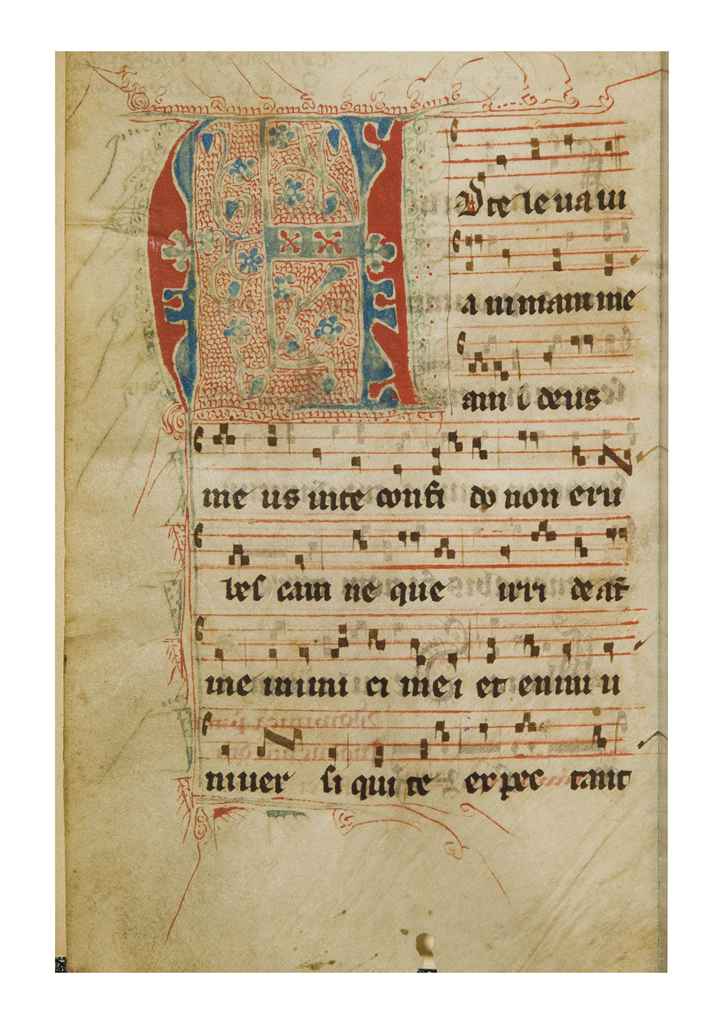 A
D te le ua ui
a nimam me
am i deus
me us in te confi do non eru
bes cam ne que irri de at
me inimi ci mei et enim u
niuer si qui te ex pec tant